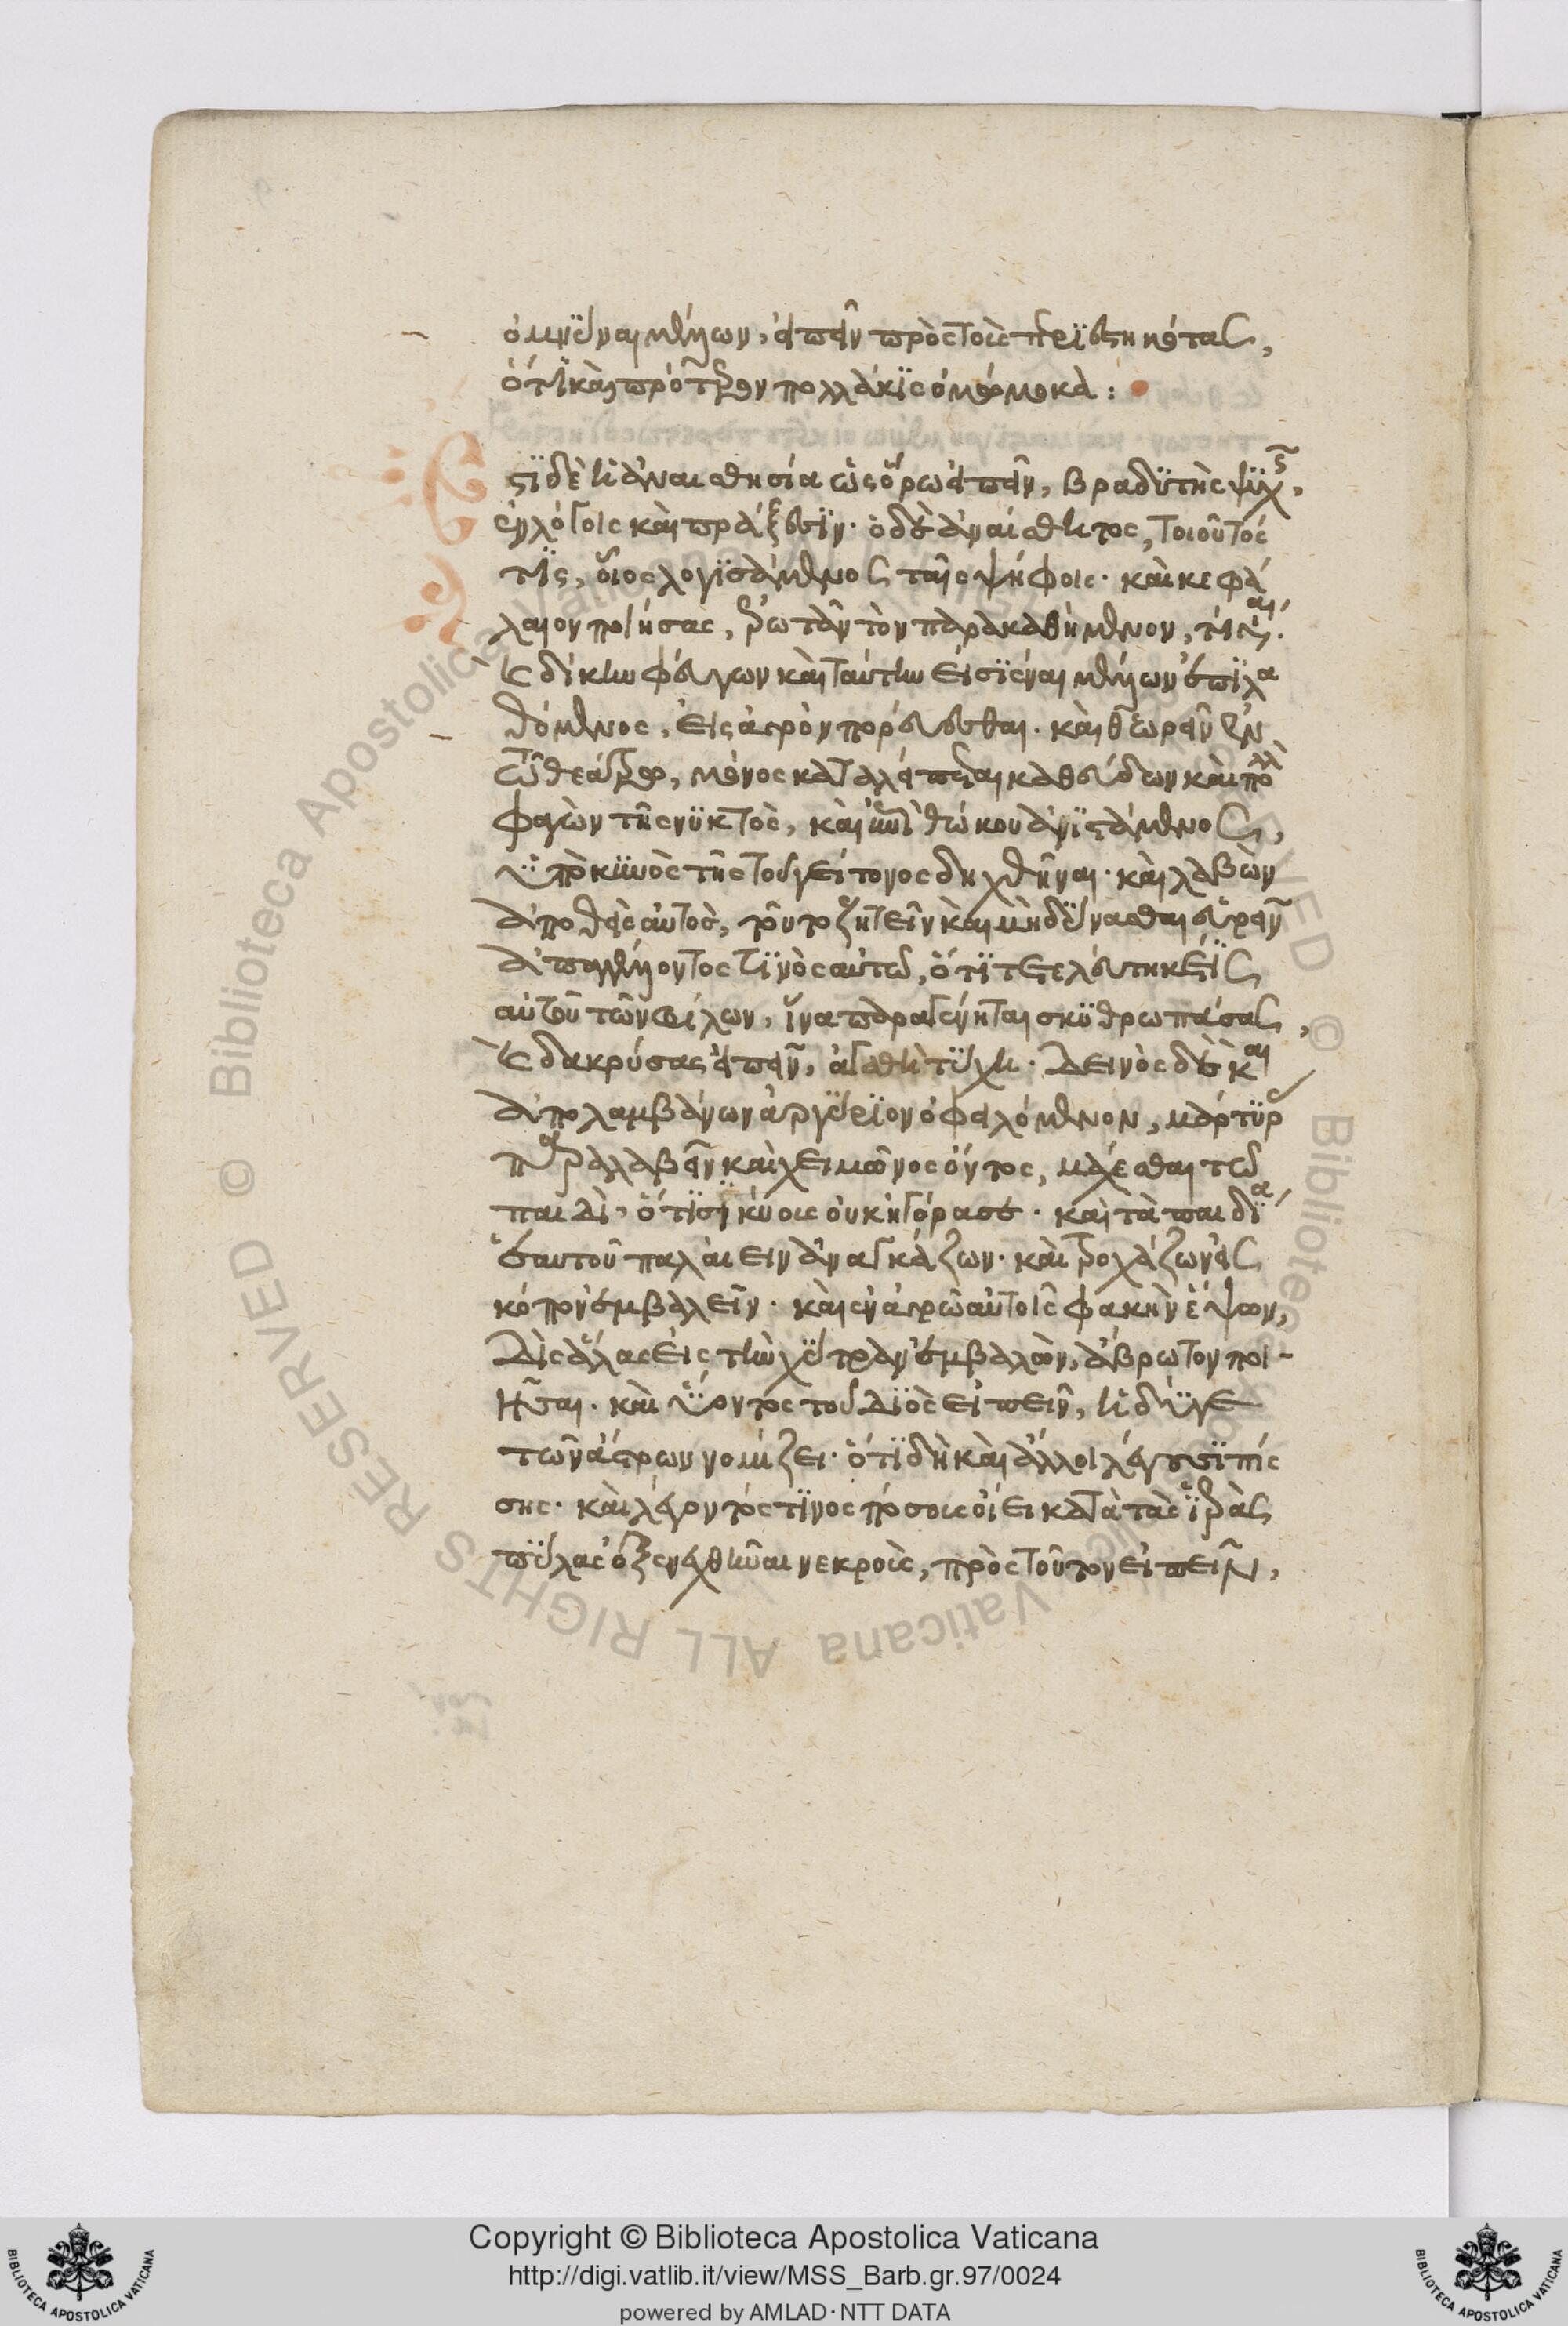 ὀμνύναι μέλλων, εἰπεῖν πρὸς τοὺς περιεστηκότας,
ὅτι καὶ πρότερον πολλάκις ὀμώμοκα :
Ἔστι δὲ ἡ ἀναισθησία ὡς ὅρω εἰπεῖν, βραδυτὴς ψυχῆς,
ἐν λόγοις καὶ πράξεσιν· ὁ δὲ ἀναίσθητος, τοιοῦτός
τις, οἷος λογισάμενος ταῖς ψήφοις· καὶ κεφά
λαιον ποιήσας, ἐρωτᾶν τὸν παρακαθήμενον, τί ἐστι.
καὶ δίκην φεύγων καὶ ταύτην εἰσιέναι μέλλων ἐπιλα
θόμενος, εἰς ἀγρὸν πορεύεσθαι. καὶ θεωρεῖν ἐν
τῶ θεάτρω, μόνος καταλείπεσθαι καθεύδων καὶ πολλὰ
φαγὼν τῆς νυκτὸς, καὶ ἐπὶ θώκου ἀνιστάμενος,
ὑπὸ κυνὸς τῆς τοῦ γείτονος δηχθῆναι· καὶ λαβὼν
ἀποθεὶς αὐτὸς, τοῦτο ζητεῖν καὶ μὴ δύνασθαι εὑρεῖν
ἀπαγγέλλοντος τινὸς αὐτῶ, ὅτι τετελεύτηκέ τις
αὐτοῦ τῶν φίλων, ἵνα παραγένηται σκυθρωπάσας,
καὶ δακρύσας εἰπεῖν, ἀγαθῆ τύχη. δεινὸς δὲ καὶ
ἀπολαμβάνων ἀργύριον ὀφειλόμενον, μάρτυρας
παραλαβεῖν καὶ χειμῶνος ὄντος, μάχεσθαι τῶ
παιδὶ, ὅτι σικύους οὐκ ἠγόρασε. καὶ τὰ παιδία
ἑαυτοῦ παλαίειν ἀναγκάζων. καὶ τροχάζων εἰς
κόπον ἐμβαλεῖν. καὶ ἐν ἀγρῶ αὐτοῖς φακὴν ἕψων,
δὶς ἅλας εἰς τὴν χύτραν ἐμβαλὼν, ἄβρωτον ποι-
ῆσαι. καὶ ὕοντος τοῦ Διὸς εἰπεῖν, ἡδύ γε
τῶν ἄστρων νομίζει. ὅτι δὴ καὶ ἄλλοι λέγουσι πίσ
σης. καὶ λέγοντός τινος πόσους οἴει κατὰ τὰς ἱερὰς
πύλας ἐξενεχθῆναι νεκροὺς, πρὸς τοῦτον εἰπεῖν,
Copyright © Biblioteca Apostolica Vaticana
http://digi.vatlib.it/view/MSS_Barb.gr.97/0024
powered by AMLAD·NTT DATA
BIBLIOTECA APOSTOLICA VATICANA
BIBLIOTECA APOSTOLICA VATICANA
© Biblioteca Apostolica Vaticana ALL RIGHTS RESERVED